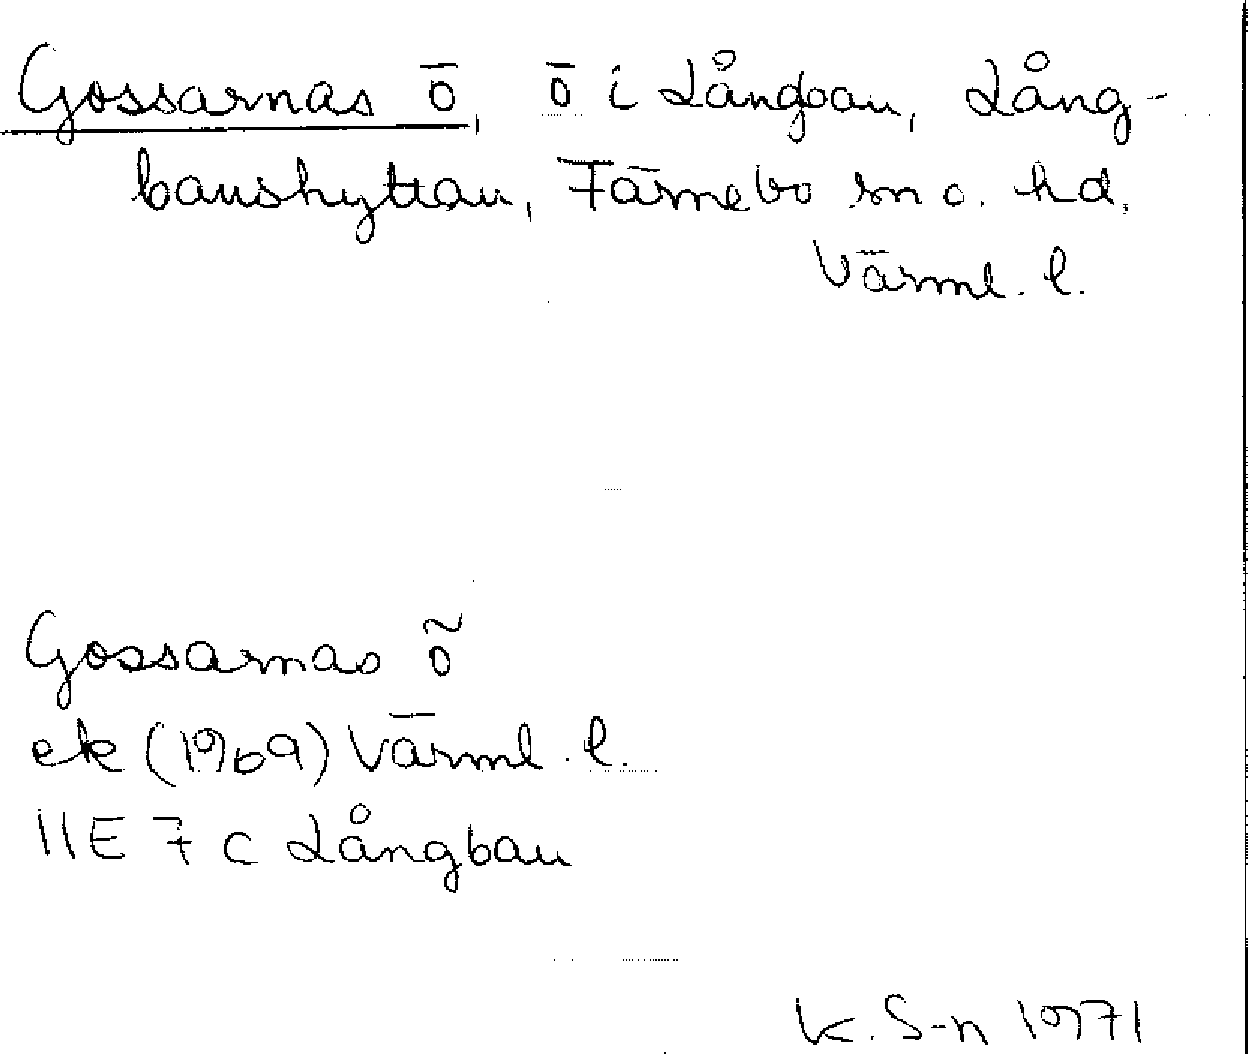 Gossarnas ö, ö i Långban, Lång-
banshyttan, Färnebo sn o. hd,
Värml. l.
Gossarnas ö
ek (1969) Värml. l.
11E 7 c Långban
K. S-n 1971